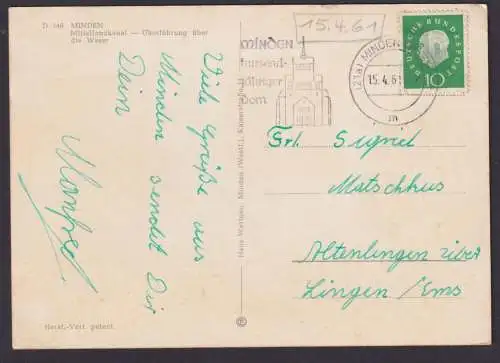 D 146 MINDEN
Mittellandkanal — Überführung über
die Weser
Viele Grüße aus
Minden sendet Dir
Dein
Manfred
Herst.-Vert. gesch.
Hans Wartner, Minden (Westf.), Kaiserstraße
15.4.61
MINDEN
tausend-
jähriger
dom
(21a) MINDEN
15.4.61
m
DEUTSCHE BUNDESPOST
10
Frl. Sigrid
Matschkus
Altenlingen über
Lingen/Ems